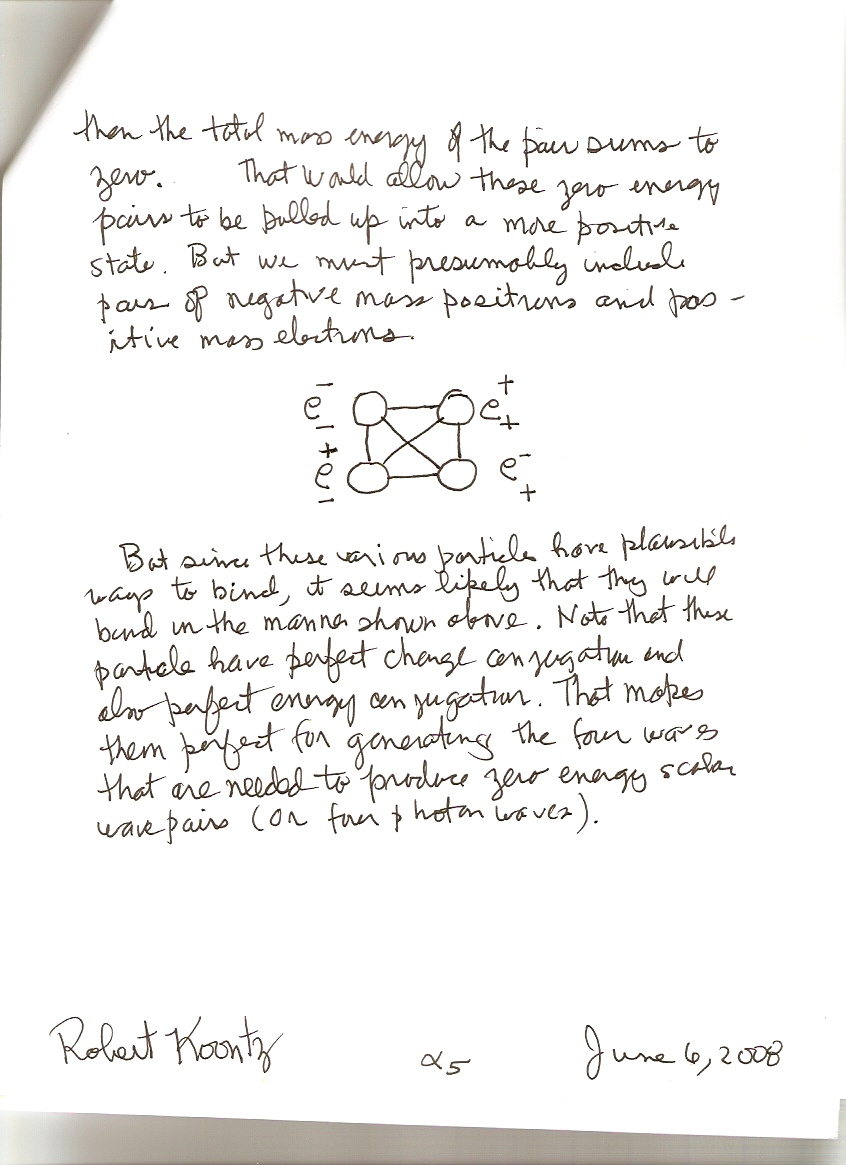 then the total mass energy of the pair sums to
zero. That would allow these zero energy
pairs to be pulled up into a more positive
state. But we must presumably include
pairs of negative mass positrons and pos-
itive mass electrons.
e⁻₋ e⁺₊
e⁺₋ e⁻₊
But since these various particles have plausible
ways to bind, it seems likely that they will
bind in the manner shown above. Note that these
particle have perfect charge conjugation and
also perfect energy conjugation. That makes
them perfect for generating the four waves
that are needed to produce zero energy scalar
wave pairs (or four photon waves).
Robert Koontz α5 June 6, 2008